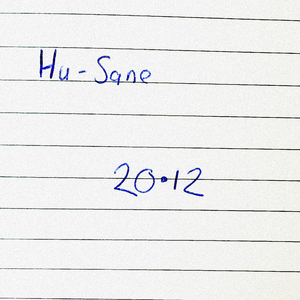 Hu-Sane
20•12